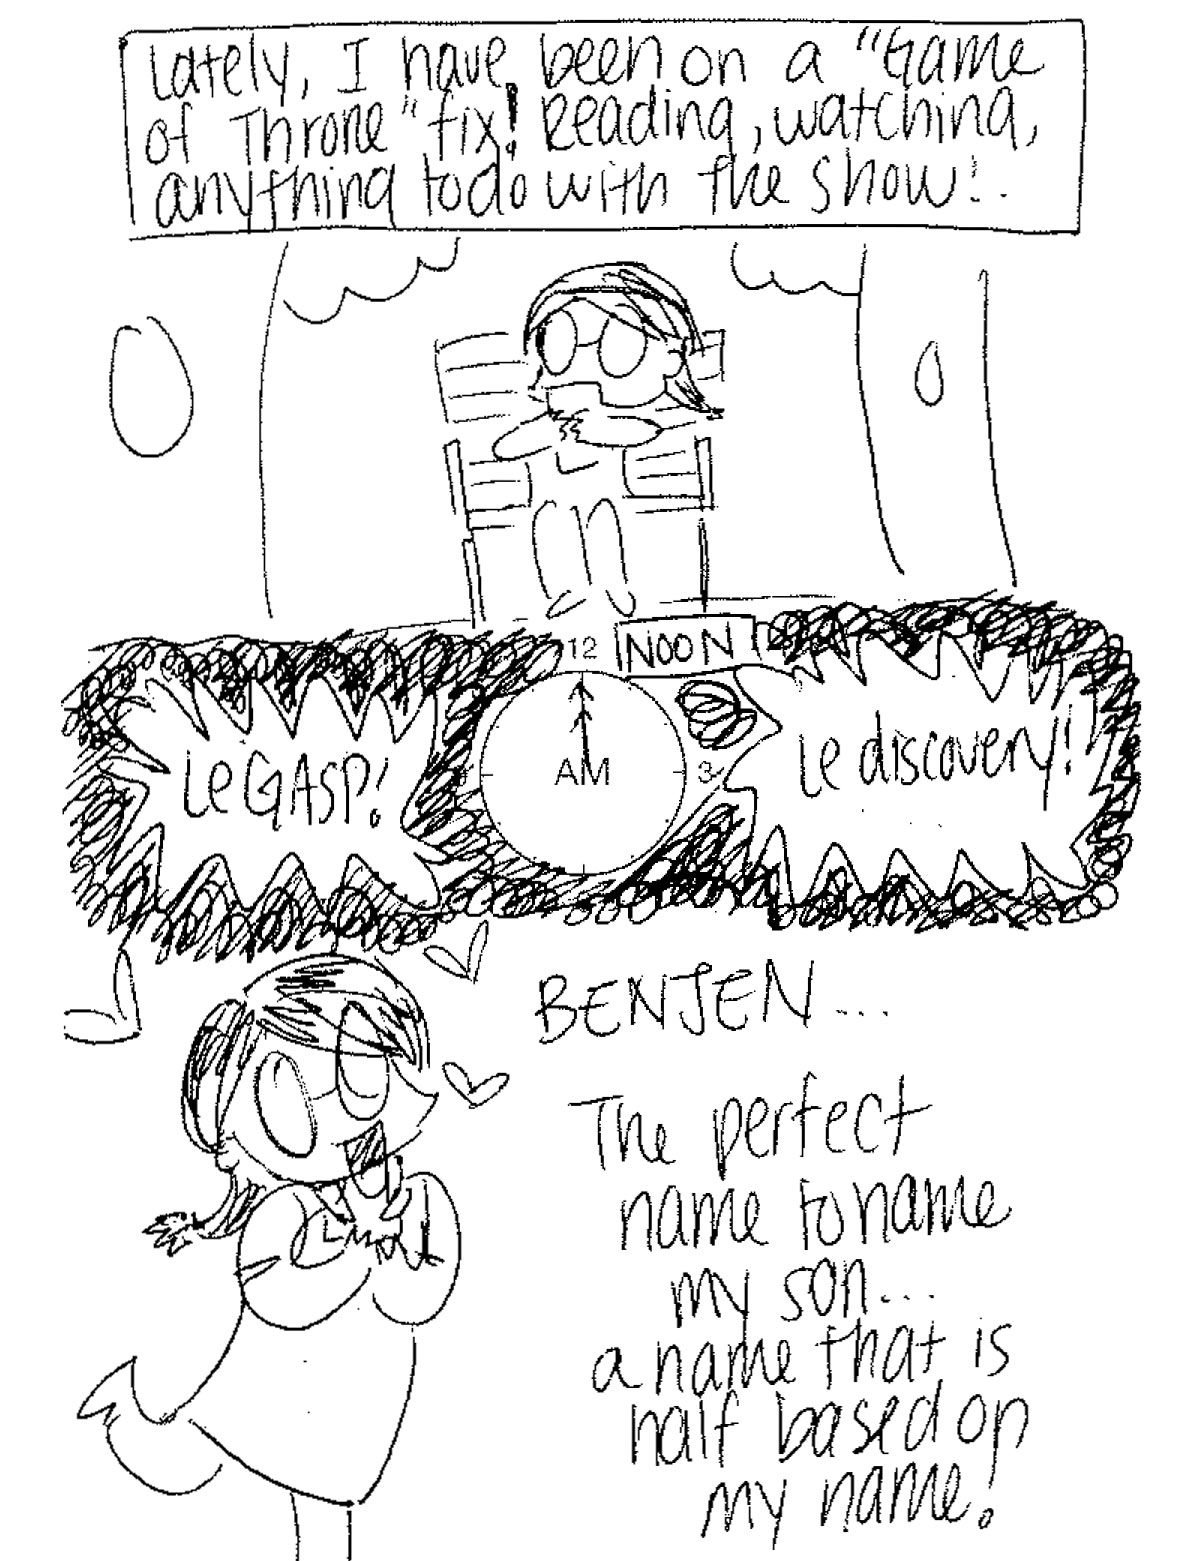 Lately, I have been on a "Game
of Throne" fix! Reading, watching,
anything to do with the show!..
12 NOON
AM
3
Le GASP!
Le discovery!
BENJEN...
The perfect
name to name
my son...
a name that is
half based on
my name!